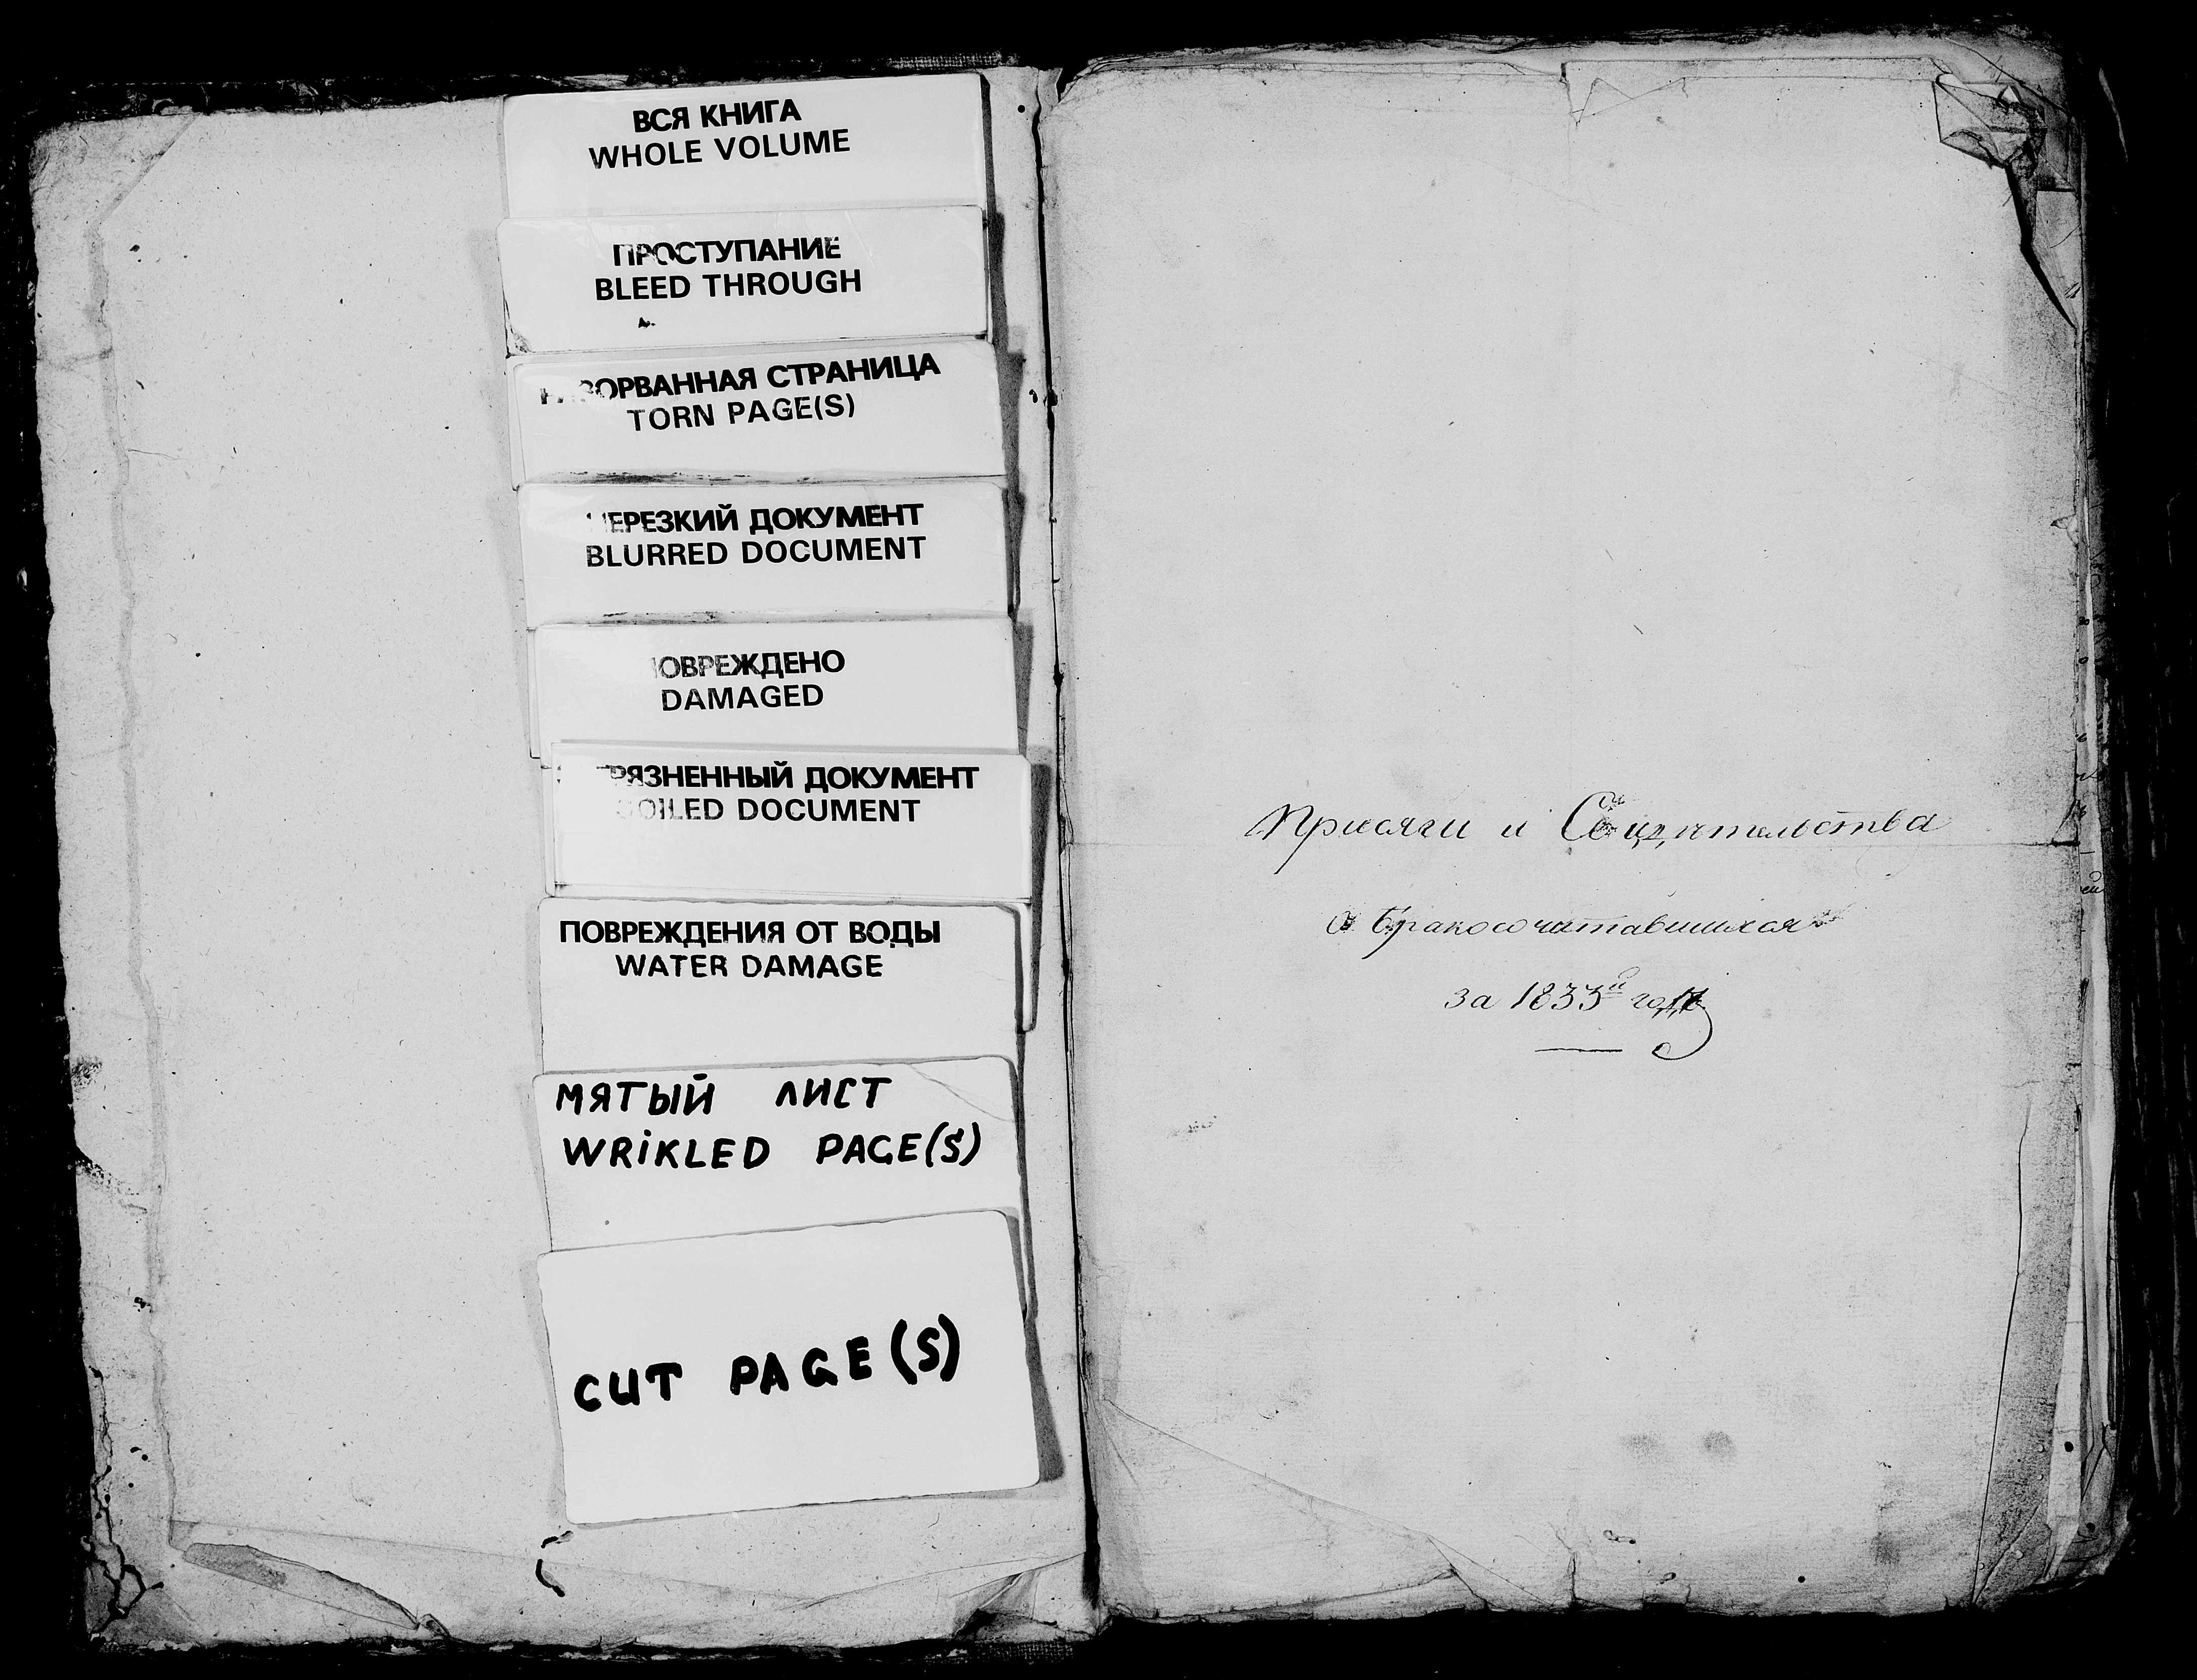 ВСЯ КНИГА
WHOLE VOLUME
ПРОСТУПАНИЕ
BLEED THROUGH
РАЗОРВАННАЯ СТРАНИЦА
TORN PAGE(S)
НЕРЕЗКИЙ ДОКУМЕНТ
BLURRED DOCUMENT
ПОВРЕЖДЕНО
DAMAGED
ЗАГРЯЗНЕННЫЙ ДОКУМЕНТ
SOILED DOCUMENT
ПОВРЕЖДЕНИЯ ОТ ВОДЫ
WATER DAMAGE
МЯТЫЙ ЛИСТ
WRIKLED PAGE(S)
CUT PAGE(S)
Присяги и
о бракосочитавшихся
за 1833й годъ